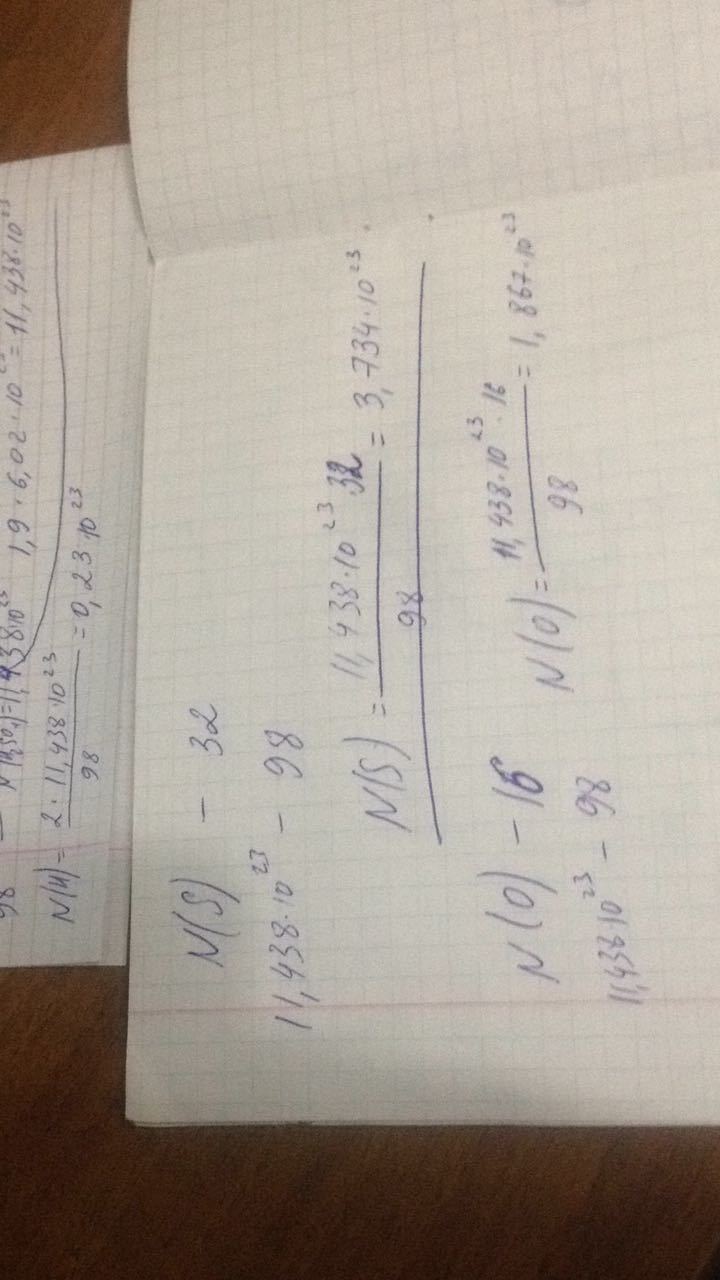 98 –
N(H₂SO₄)=11,438·10²³ 1,9·6,02·10²³=11,438·10²³
N(H)= 2·11,438·10²³ / 98 =0,23·10²³
N(S) – 32
11,438·10²³ – 98
N(S)= 11,438·10²³·32 / 98 = 3,734·10²³.
N(O) – 16
11,438·10²³ – 98
N(O)= 11,438·10²³·16 / 98 = 1,867·10²³